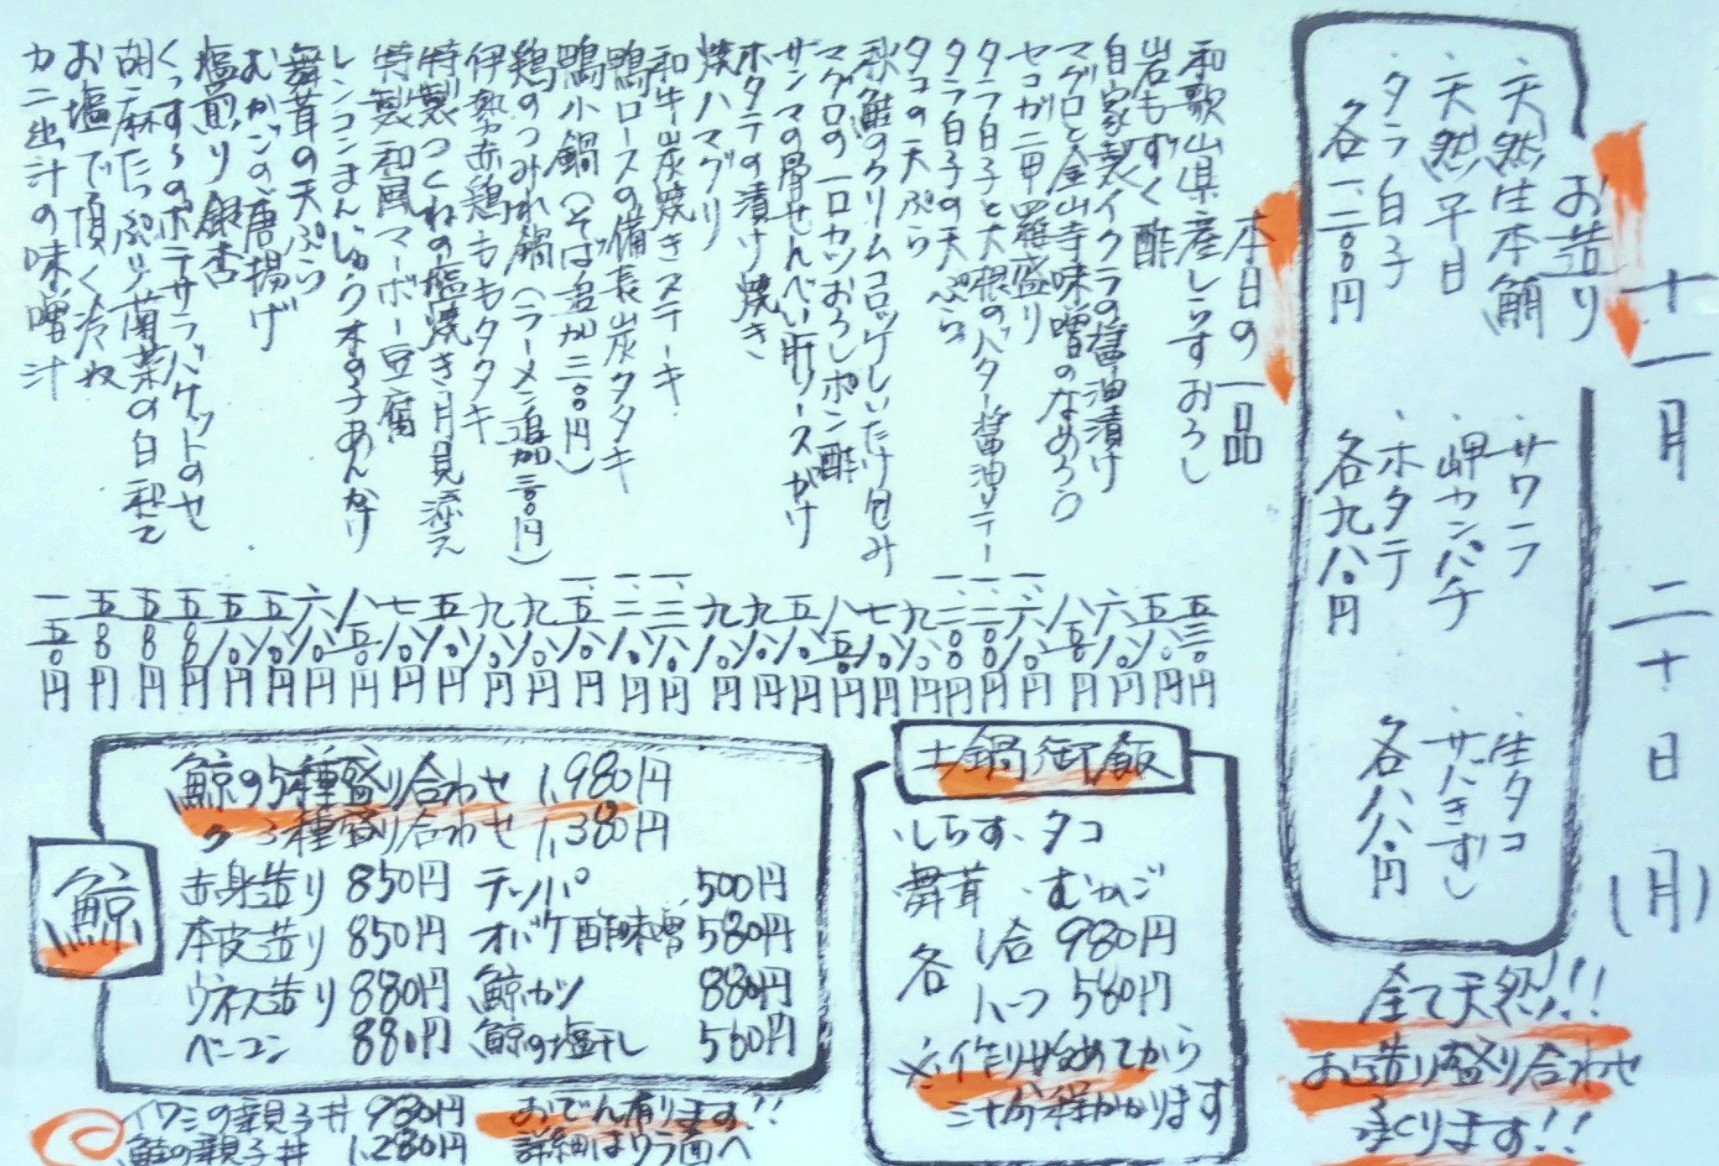 十一月二十日(月)
お造り
・天然生本鮪
・天然平目
・タラ白子
各一、二〇〇円
・サワラ
・岬カンパチ
・ホタテ
各九八〇円
・生タコ
・サバきずし
各八八〇円
全て天然!!!
お造り盛り合わせ
承ります!!
本日の一品
和歌山県産しらすおろし 五三〇円
岩もずく酢 五八〇円
自家製イクラの醤油漬け 六八〇円
マグロと金山寺味噌のなめろう 八五〇円
セコガニ甲羅盛り 一、六八〇円
タラ白子と大根のバター醤油ソテー 一、二〇〇円
タラ白子の天ぷら 一、二〇〇円
タコの天ぷら 九八〇円
秋鮭のクリームコロッケしいたけ包み 七八〇円
マグロの一口カツおろしポン酢 八五〇円
サンマの骨せんべい肝ソースがけ 五八〇円
ホタテの漬け焼き 九八〇円
焼ハマグリ 九八〇円
和牛炭焼きステーキ 一、三八〇円
鴨ロースの備長炭タタキ 一、二八〇円
鴨小鍋(そば追加三〇〇円) 一、五八〇円
鶏のつみれ鍋(ラーメン追加三〇〇円) 九八〇円
伊勢赤鶏ももタタキ 九八〇円
特製つくねの塩焼き月見添え 五八〇円
特製和風マーボー豆腐 七八〇円
レンコンまんじゅう木の子あんかけ 八五〇円
舞茸の天ぷら 六八〇円
むかごの唐揚げ 五八〇円
塩煎り銀杏 五八〇円
くっすㇳのポテサラバケットのせ 五八〇円
胡麻たっぷり菊菜の白和え 五八〇円
お塩で頂く冷奴 五八〇円
カニ出汁の味噌汁 一五〇円
土鍋御飯
・しらす・タコ
舞茸・むかご
各 1合 980円
ハーフ 580円
※作り始めてから
三十分程かかります
鯨
鯨の5種盛り合わせ 1,980円
〃 3種盛り合わせ 1,380円
赤身造り 850円 テッパ 500円
本皮造り 850円 オバケ酢味噌 580円
ウネス造り 880円 鯨カツ 880円
ベーコン 880円 鯨の塩干し 560円
イワシの親子丼 980円
鮭の親子丼 1,280円
おでん有ります!!
詳細はウラ面へ